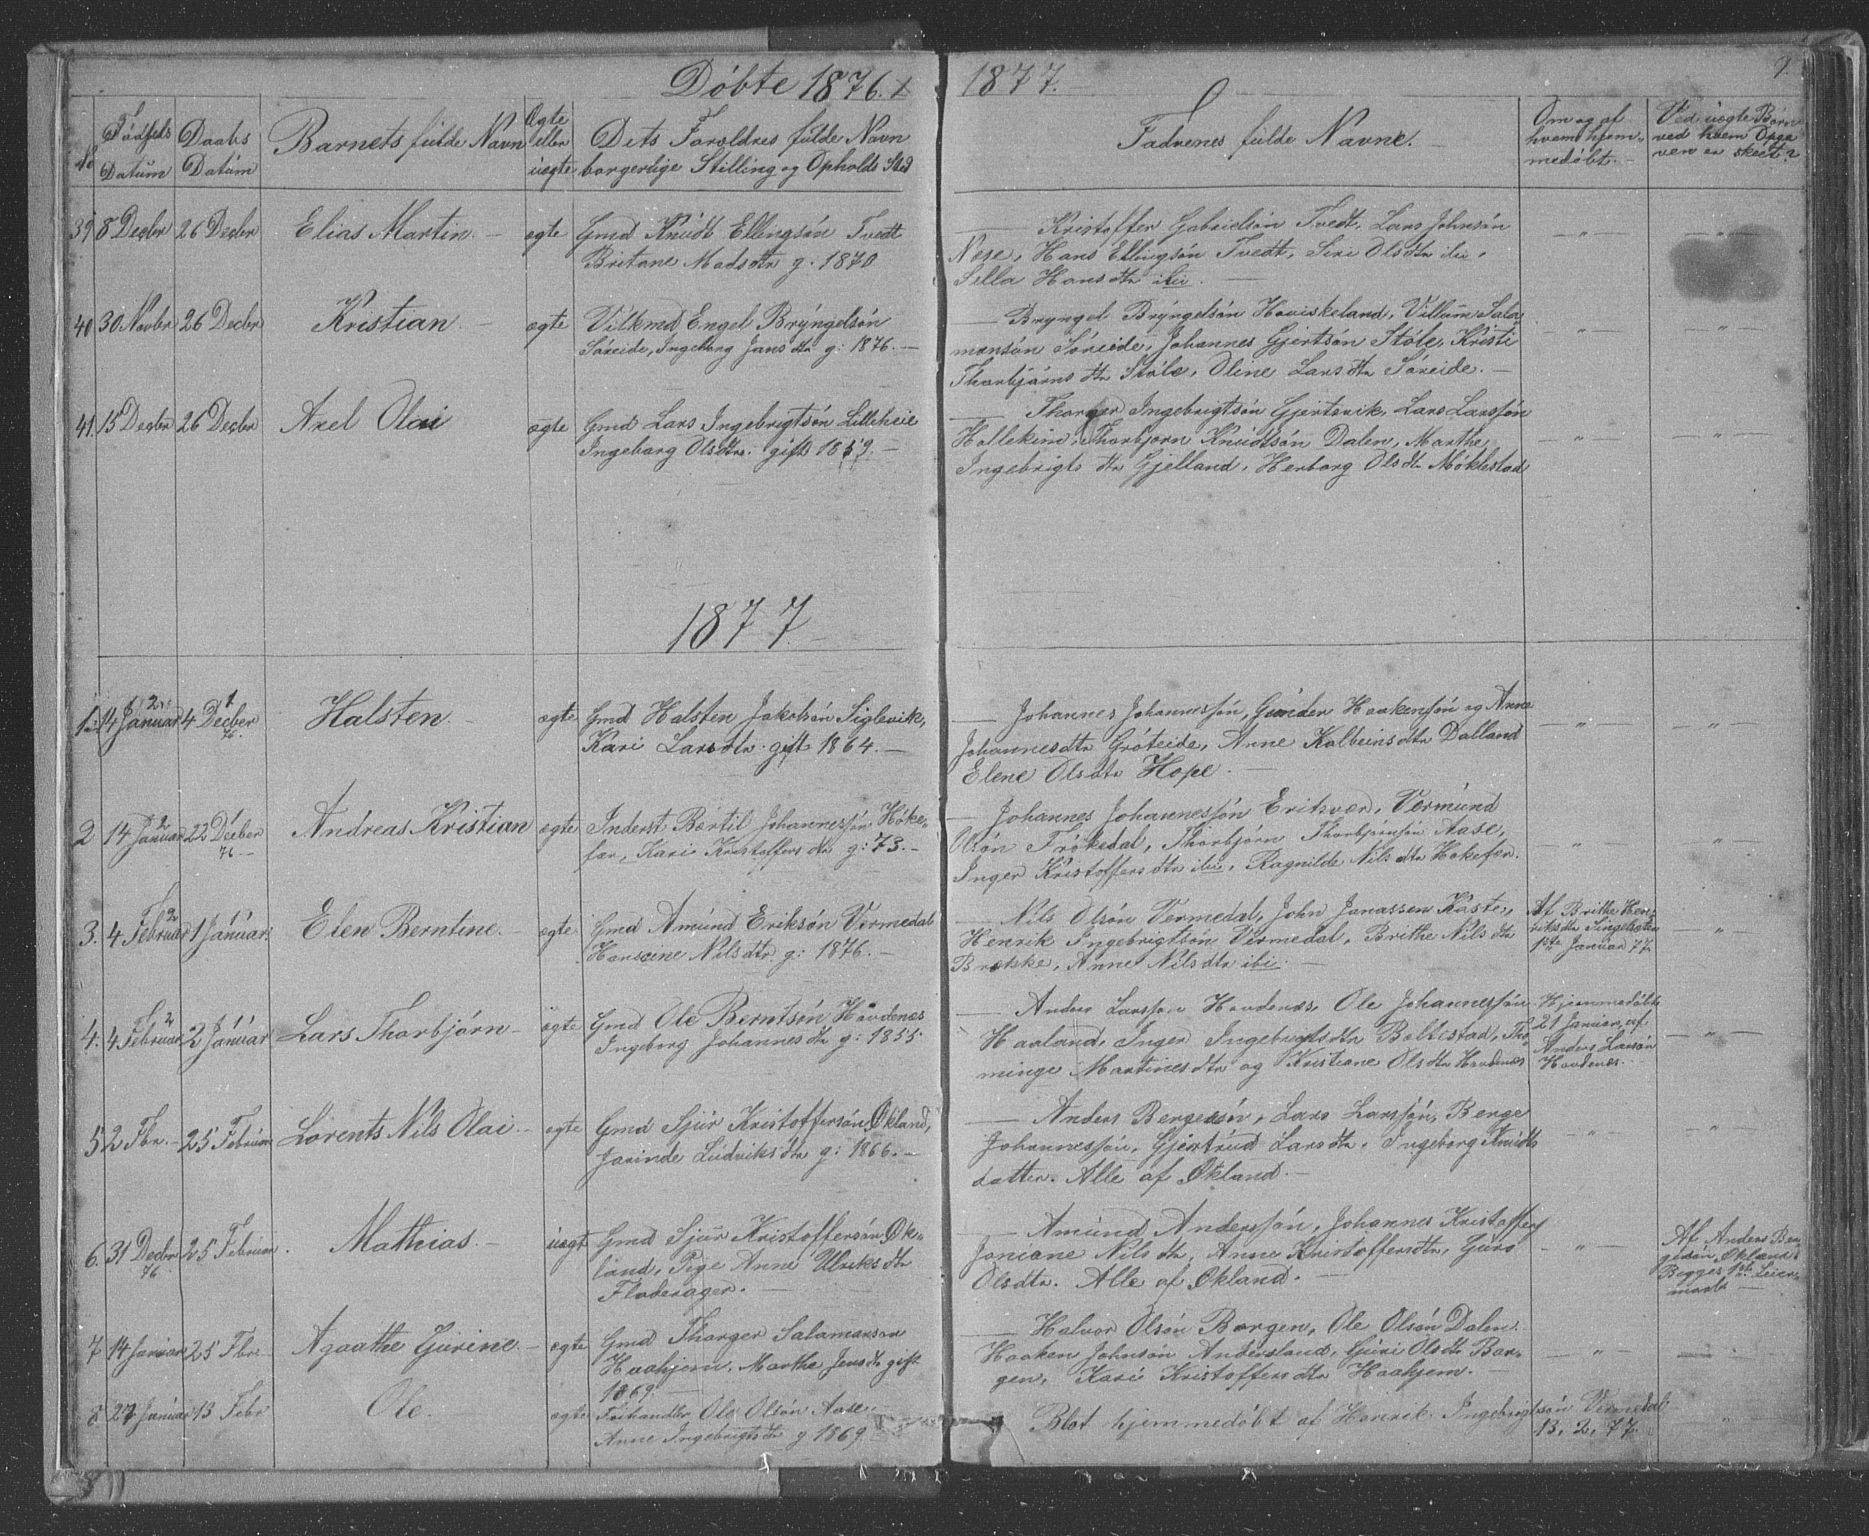 Döbte 1876. 1877. 9.
No
Födsels Datum
Daabs Datum
Barnets fulde Navn
Ægte eller uægte
Dets Forældres fulde Navn
borgerlige Stilling og Opholds Sted
Fadrenes fulde Navne.
Om og af hvem hjemmedöbt.
Ved uægte Börn ved hvem Opgaven er skeet?
39 8 Decbr 26 Decbr Elias Martin ægte Gmd Knudt Ellingsön Tvedt
Britane Mads dtr g. 1870
Kristoffer Gabrielsön Tvedt, Lars Johnsön
Næse, Hans Ellingsön Tvedt, Siri Ols dtr ibi,
Sella Hans dtr ibi
40 30 Novbr 26 Decbr Kristian ægte Vilkmd Engel Bryngelsön
Söreide, Ingeborg Jans dtr g: 1876.
Bryngel Bryngelsön Haviskeland, Villum Sala-
monsön Söreide, Johannes Gjertsön Stöle, Kristi
Thorbjörns dtr Stöle, Oline Lars dtr Söreide.
41. 15 Decbr 26 Decbr Axel Olai ægte Gmd Lars Ingebrigtsön Lilleheie
Ingeborg Ols dtr. gift 1859.
Thorger Ingebrigtsön Gjertsvik, Lars Larssön
Hollekim, Thorbjorn Knudtsön Dalen, Marthe
Ingebrigts dtr Gjelland, Herborg Ols dtr Möklestad
1877
1. 14 Januar 4 Decber 76. Halsten ægte Gmd Halsten Jakobsön Siglevik,
Kari Lars dtr. gift 1864.
Johannes Johannessön, Gunder Haakensön og Anne
Johannes dtr Gröteide, Anne Kolbeins dtr Dalland
Elene Ols dtr Hope.
2 14 Januar 22 Decber 76 Andreas Kristian ægte Inderst Bærtil Johannessön Höke-
fær, Kari Kristoffers dtr g: 73.
Johannes Johannessön Eritsvær, Vermund
Olsön Frökedal, Thorbjörn Thorbjörnsön Aase,
Inger Kristoffers dtr ibi, Ragnilde Nils dtr Hokefer.
3. 4 Februar 1 Januar. Elen Berntine ægte Gmd Amund Eriksön Vermedal
Hanscine Nils dtr. g: 1876.
Nils Olsön Vermedal, John Janassen Kaste,
Henrik Ingebrigtsön Vermedal, Brithe Nils dtr
Brække, Anne Nils dtr ibi
Af Brithe Hen-
riks dtr
1ste Januar 77
4. 4 Februar 2 Januar Lars Thorbjörn ægte Gmd Ole Berntsön Hovdenæs
Ingeborg Johannes dtr g: 1855.
Anders Larsson Hovdenæs, Ole Johannessön
Haaland, Inger Ingebrigts dtr Boltestad, Tho
minge Martines dtr og Kristiane Ols dtr Hovdenæs
Hjemmedöbt
21 Januar af
Anders Larsön
Hovdenæs.
5 2 Fbr. 25 Februar Lorents Nils Olai ægte Gmd Sjur Kristoffersön Økland,
Jorinde Ludviks dtr g: 1866.
Anders Bergesön, Lars Larssön, Berge
Johannessön, Gjertrud Lars dtr, Ingeborg Knudts
datter. Alle af Økland.
6. 31 Decbr 76 25 Februar Mathias uægt Gmd Sjur Kristoffersön Øk-
land, Pige Anne Ulriks dtr
Flaterager.
Amund Anderssön, Johannes Kristoffers
Joniane Nils dtr, Anne Kristoffers dtr, Guro
Olsdtr. Alle af Økland.
Af Anders Ber-
gesön Økland.
Begges 1ste Leier-
maal
7 14 Januar 25 Fbr Agaathe Gurine ægte Gmd Thorger Salamonson
Haahjem. Marthe Jens dtr gift
1869.
Halvor Olsön Borgen, Ole Olsön Dalen
Haaken Johnsön Andersland, Guri Ols dtr Bor-
gen, Kari Kristoffers dtr Haahjem.
8 27 Januar 13 Febr Ole. ægte Forhandler Ole Olsön Aase
Anne Ingebrigts dtr g 1869
Blot hjemmedöbt af Henrik Ingebrigtsön Vermedal
13. 2. 77